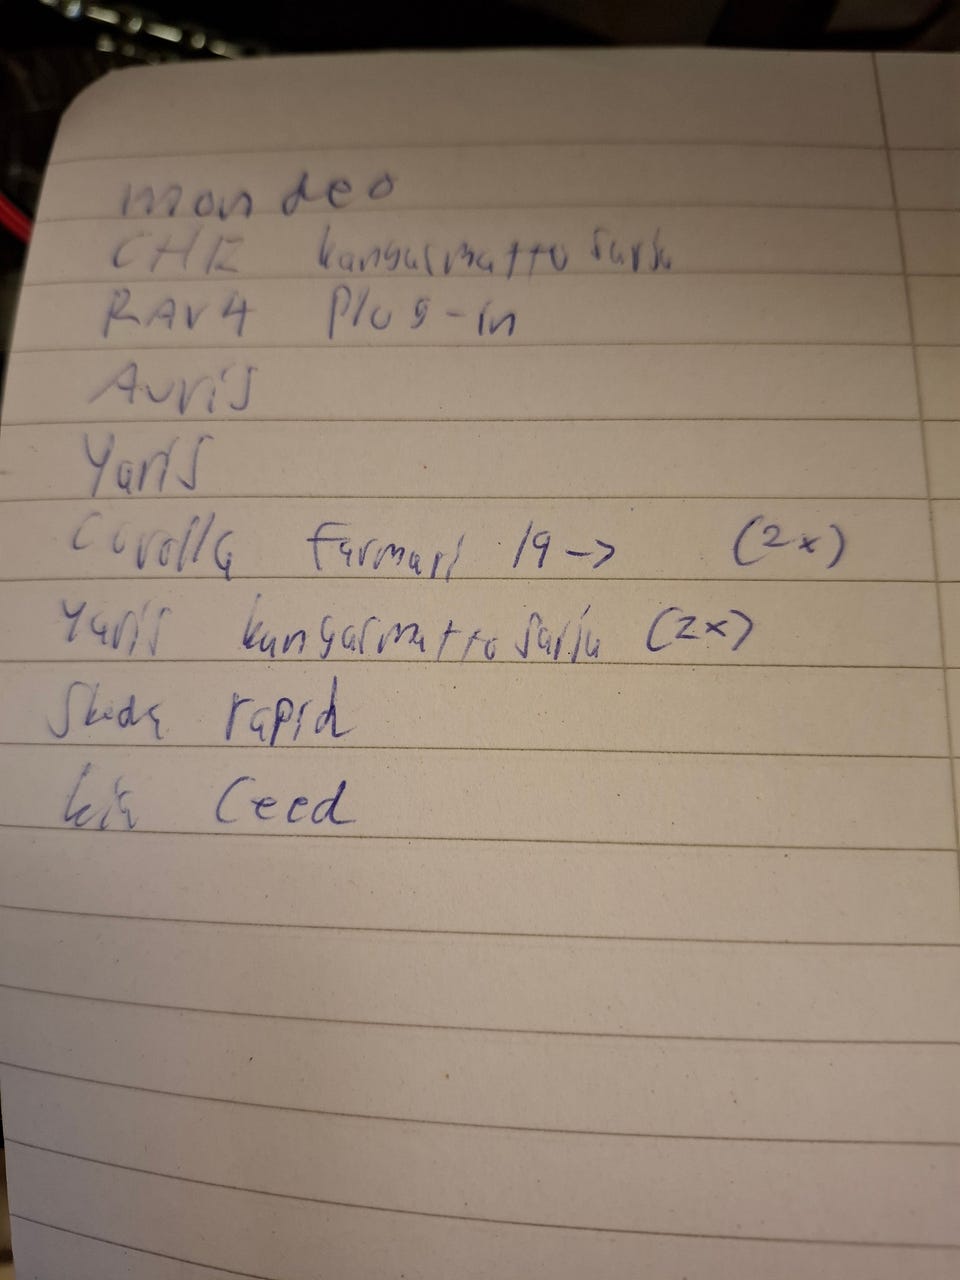 mondeo
CHR kangasmattosarja
RAV4 Plug-in
Auris
Yaris
Corolla Farmari 19->  (2x)
Yaris kangasmattosarja (2x)
Skoda rapid
kia Ceed